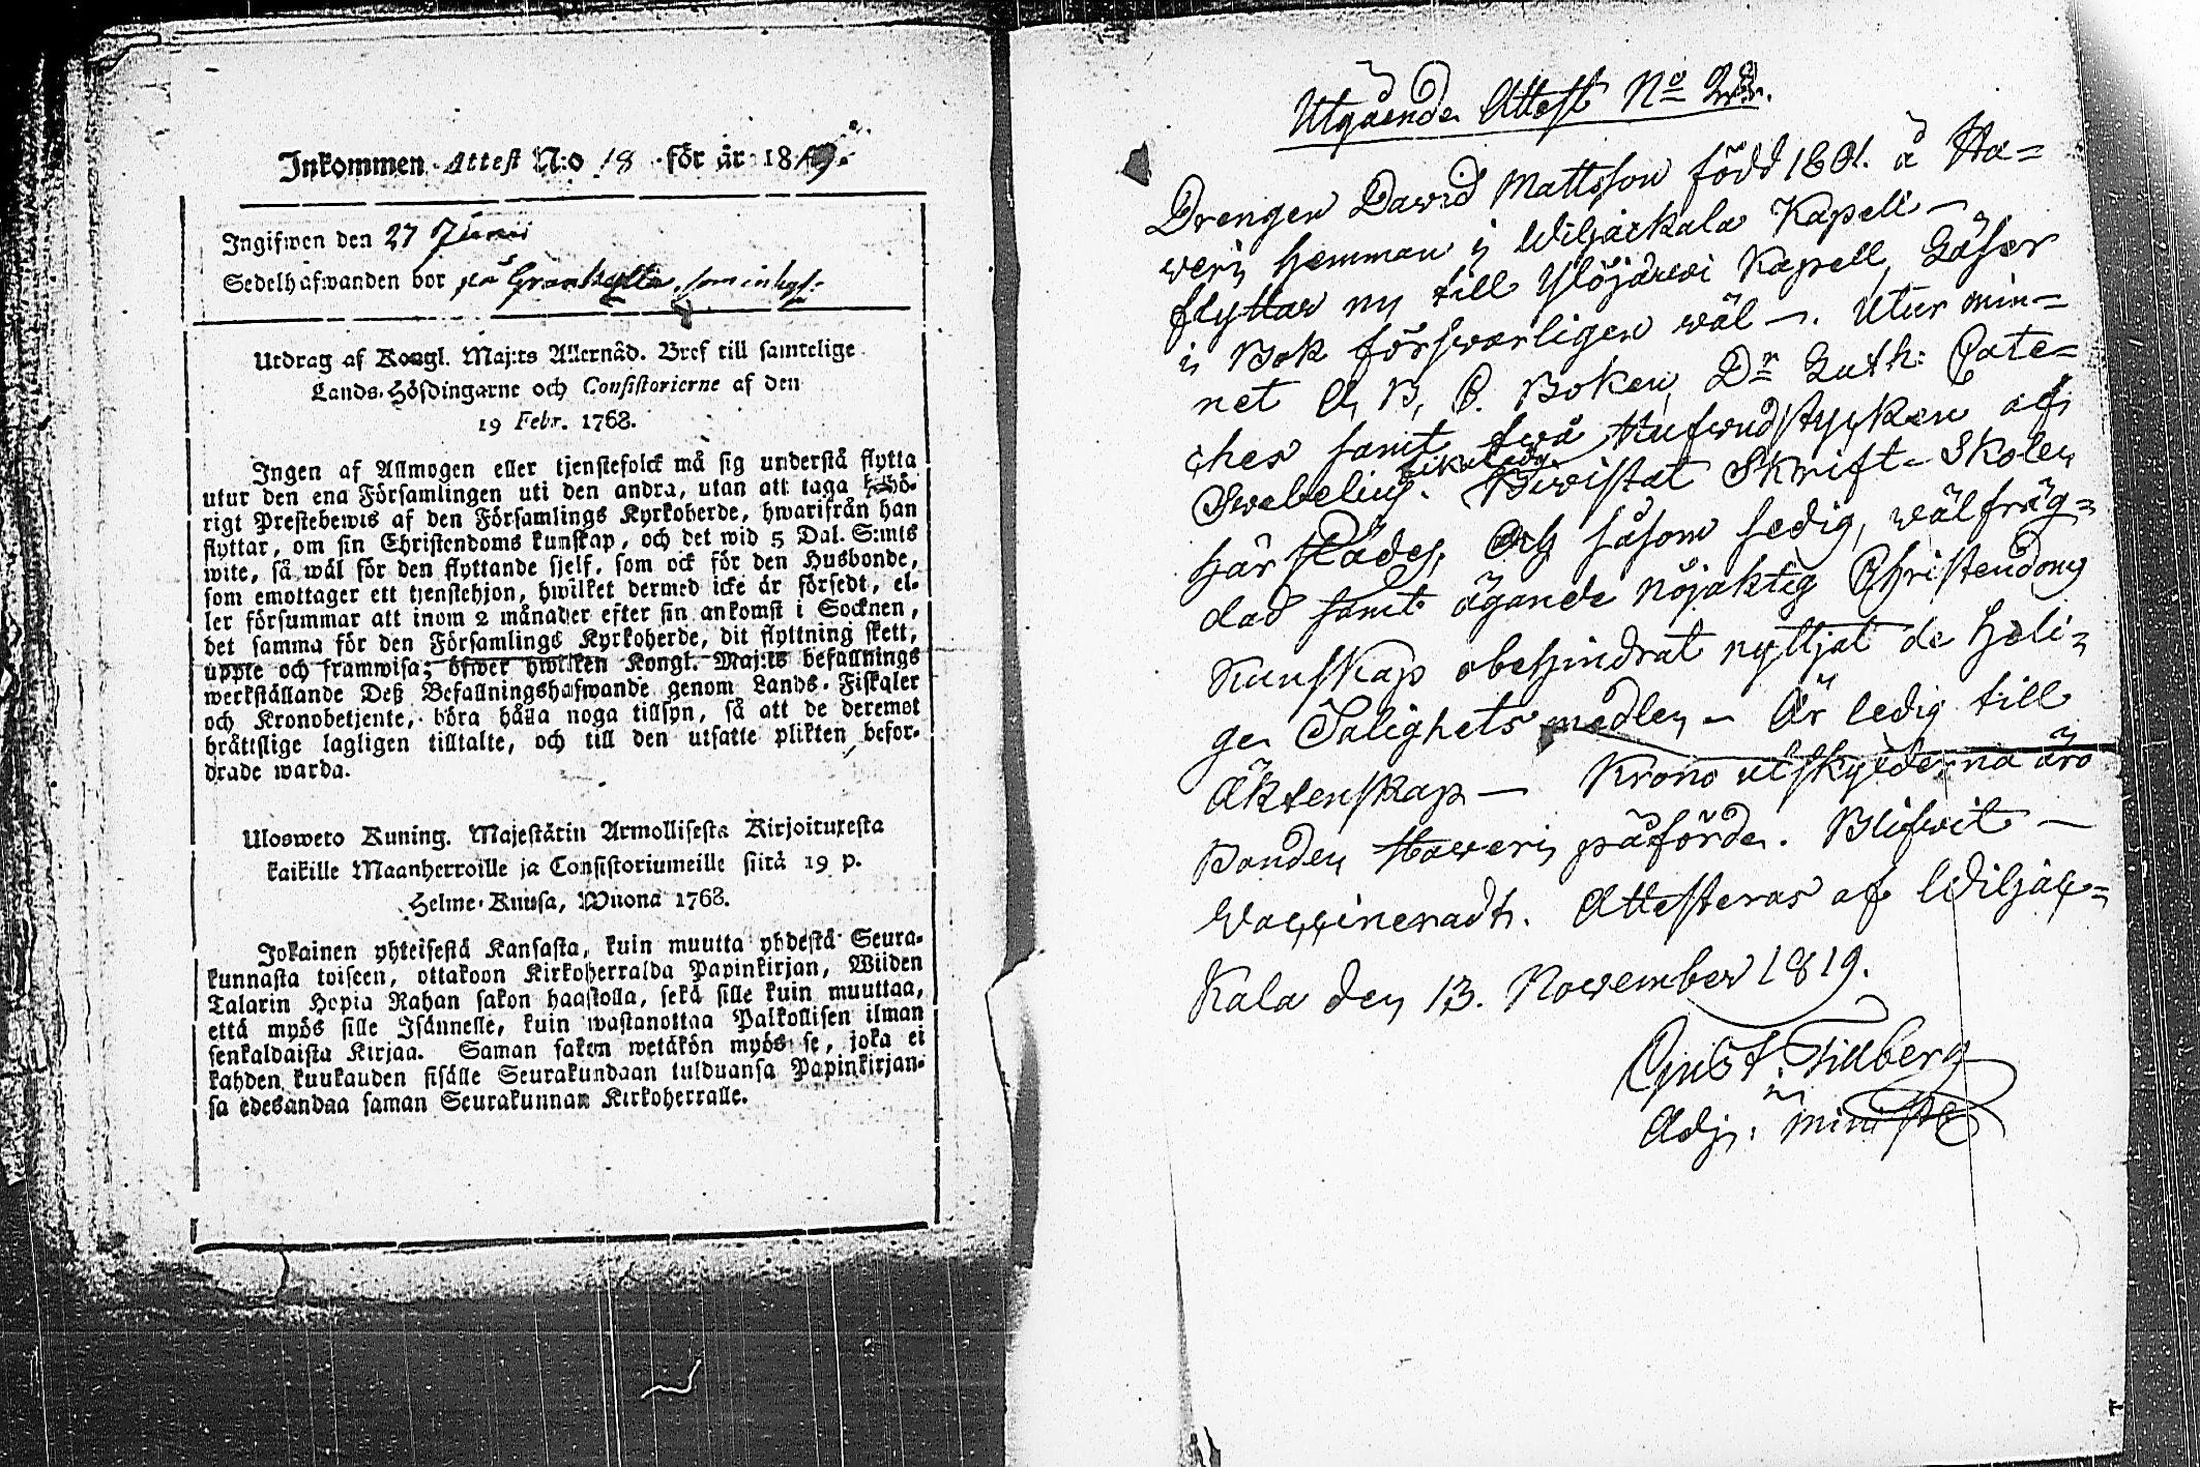 Inkommen Attest N:o 18 för år 1819.
Ingifwen den 27 Junii
Sedelhafwanden bor på Grankylla, som inhys:
Utdrag af Kongl. Maj:ts Allernåd. Bref till samtelige
Lands-Höfdingarne och Consistorierne af den
19 Febr. 1768.
Ingen af Allmogen eller tjenstefolck må sig understå flytta
utur den ena Församlingen uti den andra, utan att taga behö-
rigt Prestebewis af den Församlings Kyrkoherde, hwarifrån han
flyttar, om sin Christendoms kunskap, och det wid 5 Dal. S:mts
wite, så wäl för den flyttande sjelf, som ock för den Husbonde,
som emottager ett tjenstehjon, hwilket dermed icke är försedt, el-
ler försummar att inom 2 månader efter sin ankomst i Socknen,
det samma för den Församlings Kyrkoherde, dit flyttning skett,
uppte och framwisa; öfwer hwilken Kongl. Maj:ts befallnings
werkställande Deß Befallningshafwande genom Lands-Fiskaler
och Kronobetjente, böra hålla noga tillsyn, så att de deremot
bråttslige lagligen tilltalte, och till den utsatte plikten befor-
drade warda.
Ulosweto Kuning. Majestätin Armollisesta Kirjoituxesta
kaikille Maanherroille ja Consistoriumeille siitä 19 p.
Helme-Kuusa, Wuona 1768.
Jokainen yhteisestä Kansasta, kuin muutta yhdestä Seura-
kunnasta toiseen, ottakoon Kirkoherralda Papinkirjan, Wiiden
Talarin Hopia Rahan sakon haastolla, sekä sille kuin muuttaa,
että myös sille Isännelle, kuin wastanottaa Palkollisen ilman
senkaldaista Kirjaa. Saman sakon wetäkön myös se, joka ei
kahden kuukauden sisälle Seurakundaan tulduansa Papinkirjan-
sa edesandaa saman Seurakunnan Kirkoherralle.
Utgående Attest No
Drengen David Mattsson född 1801. å Ha-
veri Hemman i Wiljackala Kapell –
flyttar ny till Ylöjärvi Kapell, Läser
i Bok försvarligen wäl –. Utur min-
net A, B, C. Boken, Dr Luth: Cate-
ches samt twå Hufvudstycken af
Swebelius. likaledes Bivistat Skrift-Skolen
härstädes. Och såsom sedig, wälfräg-
dad samt ägande nöjaktig Christendoms
Kunskap obehindrat nyttjat de Heli-
ge Salighets medlen – Är ledig till
Äktenskap – Krono utskylderna äro
Bonden Haveri påförde. Blifwit –
Vaccineradt. Attesteras af Wiljac-
kala den 13. November 1819.
Gust. Tillberg
Adj. Minist